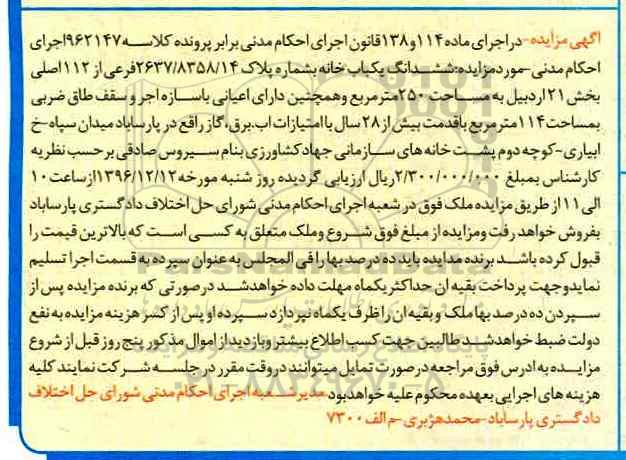 آگهی مزایده-در اجرای ماده ۱۱۴و۱۳۸قانون اجرای احکام مدنی برابر پرونده کلاسه۹۶۲۱۴۷اجرای
احکام مدنی-موردمزایده:ششدانگ یکباب خانه بشماره پلاک ۲۶۳۷/۸۳۵۸/۱۴فرعی از ۱۱۲اصلی
بخش ۲۱اردبیل به مساحت ۲۵۰مترمربع وهمچنین دارای اعیانی باسازه اجر و سقف طاق ضربی
بمساحت۱۱۴مترمربع باقدمت بیش از۲۸سال باامتیازات اب.برق،گاز راقع در پارساباد میدان سپاه-خ
ابیاری-کوچه دوم پشت خانه های سازمانی جهادکشاورزی بنام سیروس صادقی برحسب نظریه
کارشناس بمبلغ ۲/۳۰۰/۰۰۰/۰۰۰ریال ارزیابی گردیده روز شنبه مورخه۱۳۹۶/۱۲/۱۲ازساعت۱۰
الی۱۱از طریق مزایده ملک فوق در شعبه اجرای احکام مدنی شورای حل اختلاف دادگستری پارساباد
بفروش خواهد رفت ومزایده از مبلغ فوق شروع وملک متعلق به کسی است که بالاترین قیمت را
قبول کرده باشد برنده مدایده باید ده درصد بها رافی المجلس به عنوان سپرده به قسمت اجرا تسلیم
نمایدوجهت پرداخت بقیه ان حداکثریکماه مهلت داده خواهدشد درصورتی که برنده مزایده پس از
سپردن ده درصد بهاملک و بقیه ان راظرف یکماه نپردازد سپرده او پس از کسر هزینه مزایده به نفع
دولت ضبط خواهدشد طالبین جهت کسب اطلاع بیشتروبازدیداز اموال مذکور پنج روز قبل از شروع
مزایده به ادرس فوق مراجعه درصورت تمایل میتوانند دروقت مقرر در جلسه شرکت نمایند کلیه
هزینه های اجرایی بعهده محکوم علیه خواهدبود مدیرشعبه اجرای احکام مدنی شورای حل اختلاف
دادگستری پارساباد-محمدهژبری-م الف ۷۳۰۰
ParsNamadData
۰۲۱-۸۸۳۴۹۶۷۰-۵